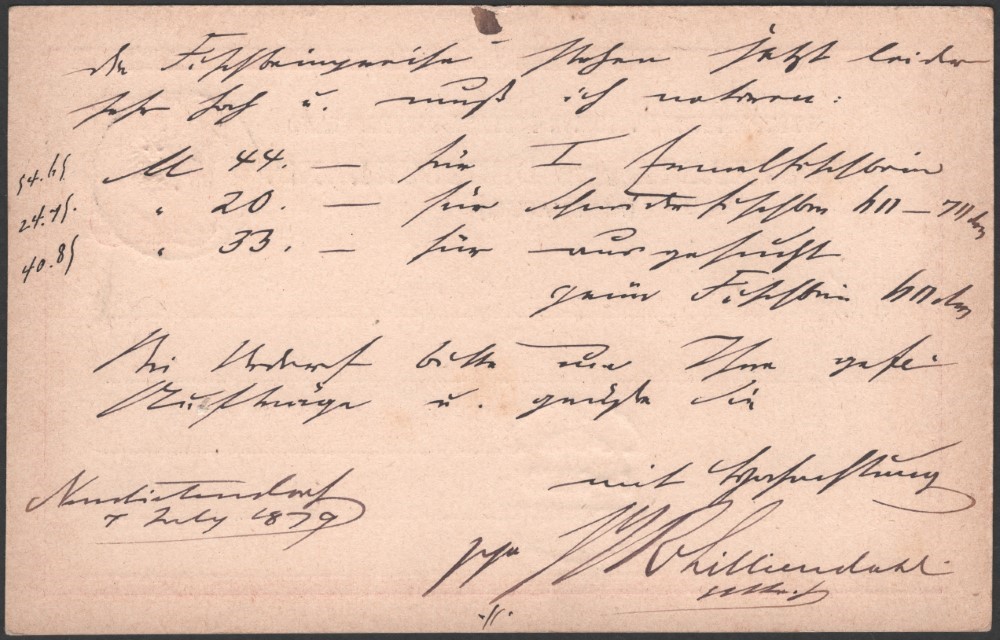 die Fischbeinpreise stehen jetzt leider
sehr hoch u. muß ich notieren:
54.65 M 44. — für I
24.75. " 20. — für Schneiderfischbein 60 — 70
40.85 " 33. — für ausgesucht
Fischbein 60
Bei Bedarf bitte um Ihre gefl.
Aufträge u. grüße Sie
mit Hochachtung
Neudietendorf
7 July 1879
ppa Lilliendahl